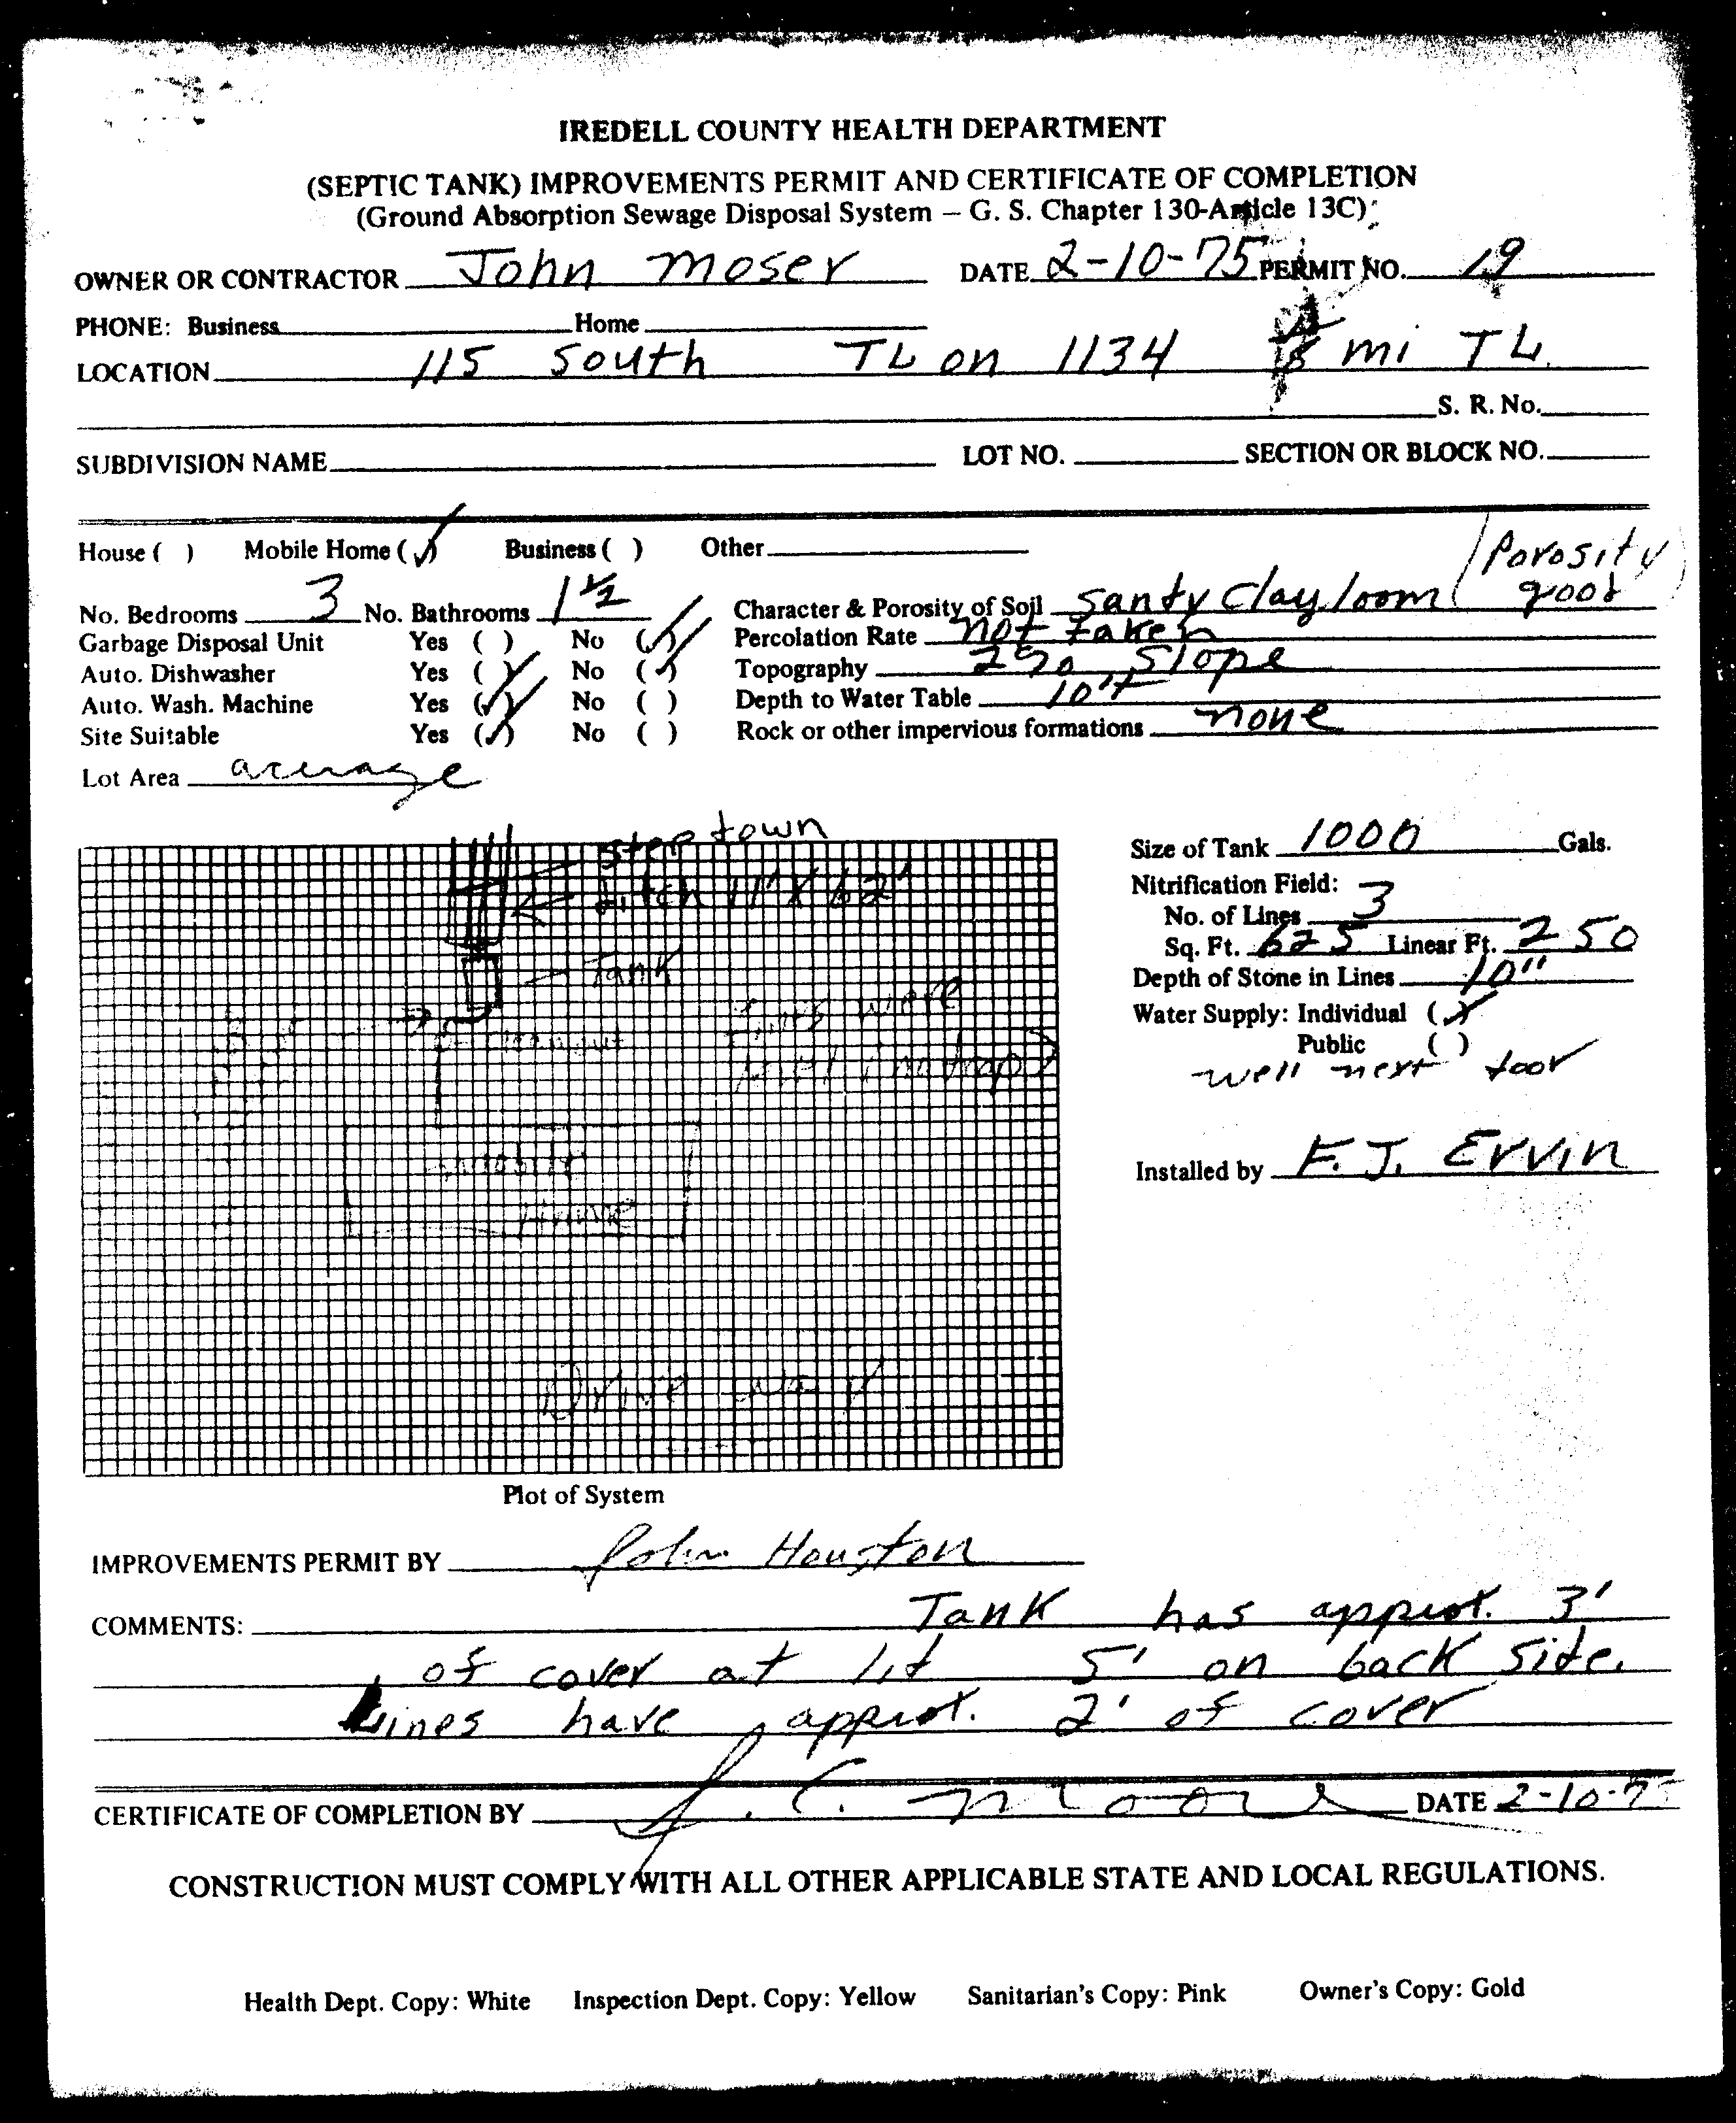 IREDELL COUNTY HEALTH DEPARTMENT
(SEPTIC TANK) IMPROVEMENTS PERMIT AND CERTIFICATE OF COMPLETION
(Ground Absorption Sewage Disposal System – G. S. Chapter 130-Article 13C)
OWNER OR CONTRACTOR John Moser DATE 2-10-75 PERMIT NO. 19
PHONE: Business Home
LOCATION 115 South TL on 1134 mi TL
S. R. No.
SUBDIVISION NAME LOT NO. SECTION OR BLOCK NO.
House ( ) Mobile Home (✓) Business ( ) Other
No. Bedrooms 3 No. Bathrooms 1 1/2
Garbage Disposal Unit Yes ( ) No (✓)
Auto. Dishwasher Yes ( ) No (✓)
Auto. Wash. Machine Yes (✓) No ( )
Site Suitable Yes (✓) No ( )
Lot Area acreage
Character & Porosity of Soil Sandy Clay loom (Porosity good)
Percolation Rate not taken
Topography 2% Slope
Depth to Water Table 10'+
Rock or other impervious formations none
step down
ditch 11' X 62'
Tank
Lines were
Mobile
Home
Drive way
Plot of System
Size of Tank 1000 Gals.
Nitrification Field:
No. of Lines 3
Sq. Ft. 625 Linear Ft. 250
Depth of Stone in Lines 10"
Water Supply: Individual (✓)
Public ( )
well next door
Installed by F. J. Ervin
IMPROVEMENTS PERMIT BY John Houston
COMMENTS: Tank has approx. 3'
of cover at lid 5' on back side.
Lines have approx. 2' of cover
CERTIFICATE OF COMPLETION BY J. C. Moore DATE 2-10-75
CONSTRUCTION MUST COMPLY WITH ALL OTHER APPLICABLE STATE AND LOCAL REGULATIONS.
Health Dept. Copy: White Inspection Dept. Copy: Yellow Sanitarian's Copy: Pink Owner's Copy: Gold